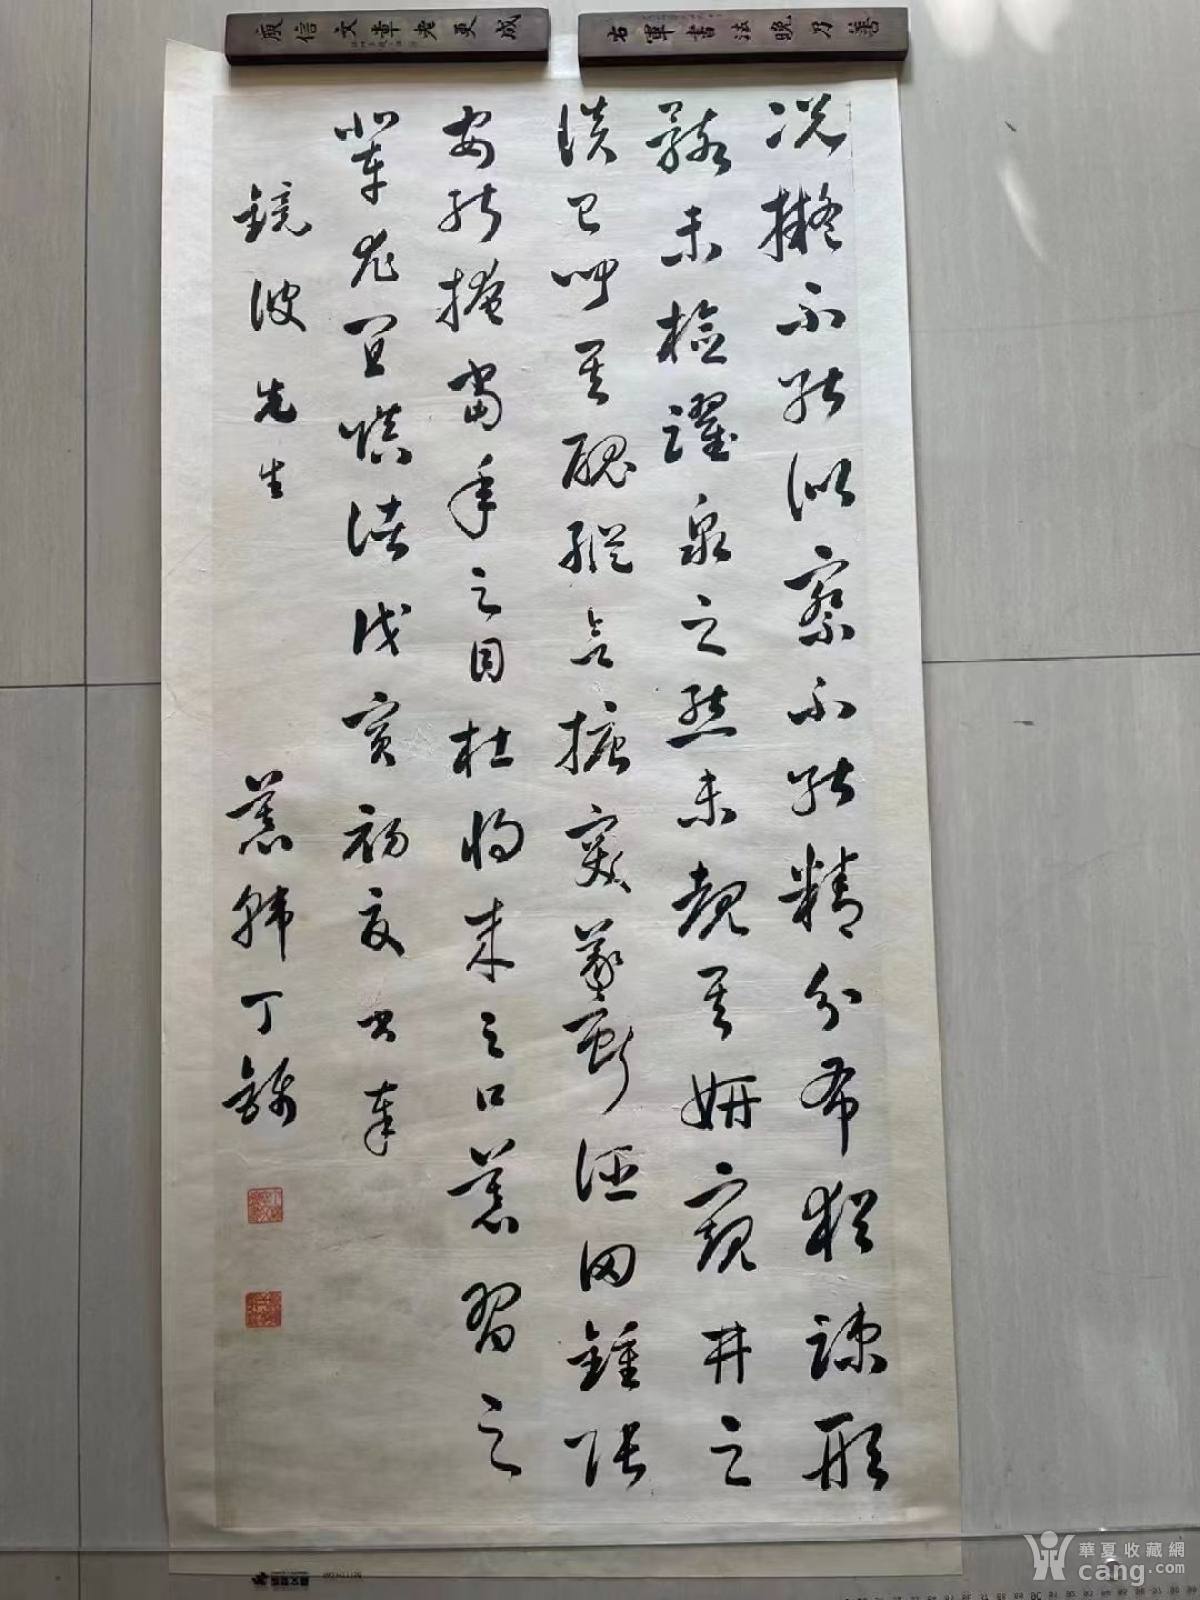 庾信文章老更成
右軍書法晚乃善
况擬不能似察不能精分布猶疎形
骸未檢躍泉之態未覩其妍窺井之
談已聞其醜縱欲搪突羲獻誣罔鍾張
安能掩當年之目杜將來之口慕習之
輩尤宜慎諸戊寅初夏書奉
鏡波先生 慕韓丁錦
華夏收藏網
cang.com